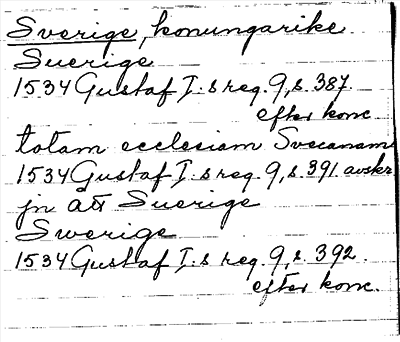 Sverige, konungarike
Suerige
1534 Gustaf I:s reg. 9, s. 387.
efter konc.
totam ecclesiam Svecanam
1534 Gustaf I:s reg. 9, s. 391. avskr.
jn att Suerige
Swerige
1534 Gustaf I:s reg. 9, s. 392.
efter konc.